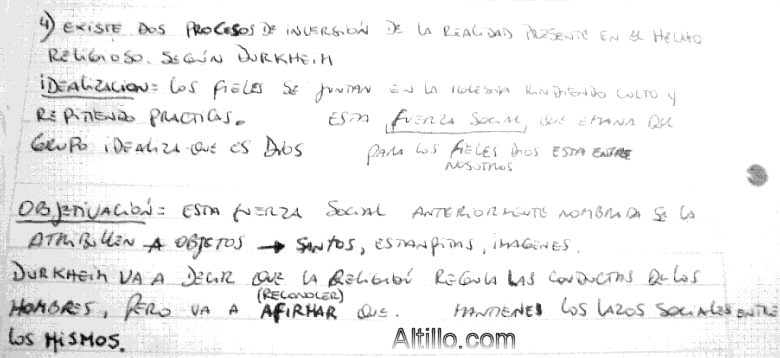 4) EXISTE DOS PROCESOS DE INVERSIÓN DE LA REALIDAD PRESENTE EN EL HECHO
RELIGIOSO. SEGÚN DURKHEIM
IDEALIZACION = LOS FIELES SE JUNTAN EN LA IGLESIA RINDIENDO CULTO Y
REPITIENDO PRACTICAS. ESTA FUERZA SOCIAL, QUE EMANA DEL
GRUPO IDEALIZA QUE ES DIOS PARA LOS FIELES DIOS ESTA ENTRE
NOSOTROS
OBJETIVACIÓN = ESTA FUERZA SOCIAL ANTERIORMENTE NOMBRADA SE LA
ATRIBUYEN A OBJETOS → SANTOS, ESTANPITAS, IMAGENES.
DURKHEIM VA A DECIR QUE LA RELIGIÓN REGULA LAS CONDUCTAS DE LOS
HOMBRES, PERO VA A (RECONOCER) AFIRMAR QUE. MANTIENES LOS LAZOS SOCIALES ENTRE
LOS MISMOS.
Altillo.com